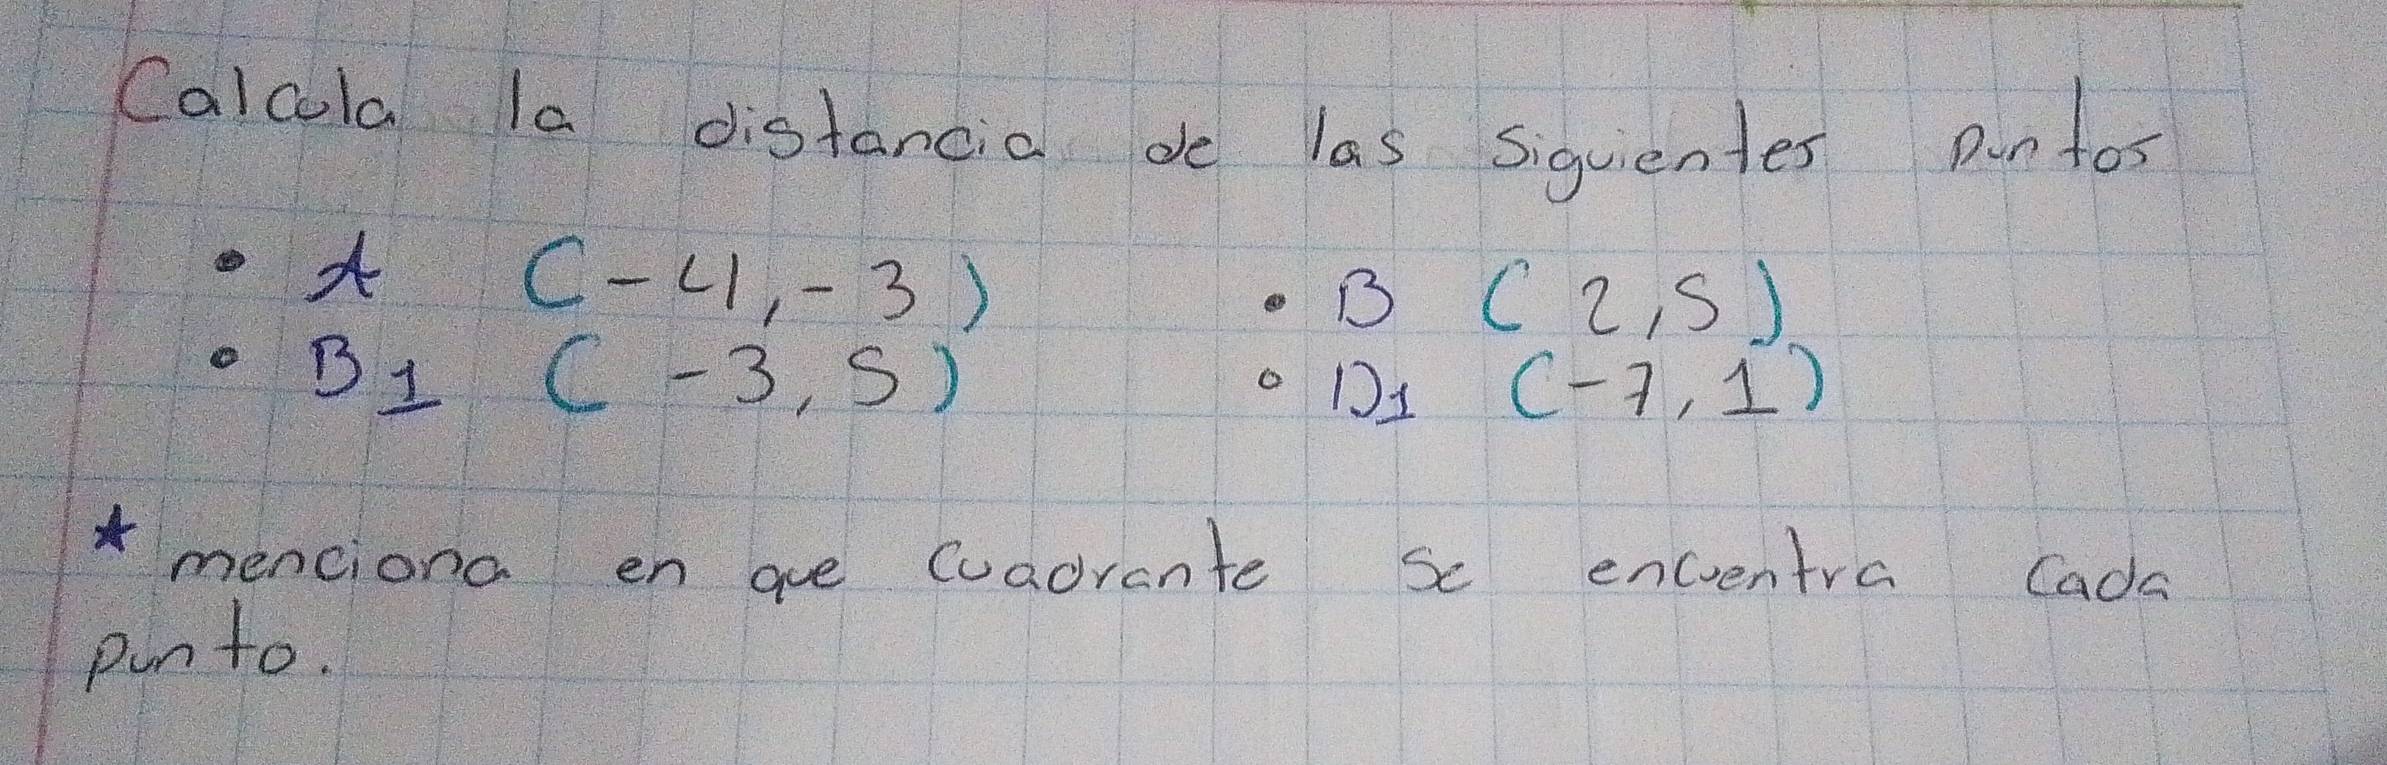 Calcula la distancia de las siguientes puntos
• A (-4,-3) • B (2,5)
• B1 (-3,5) • D1 (-7,1)
* menciona en que cuadrante se encuentra cada
punto.